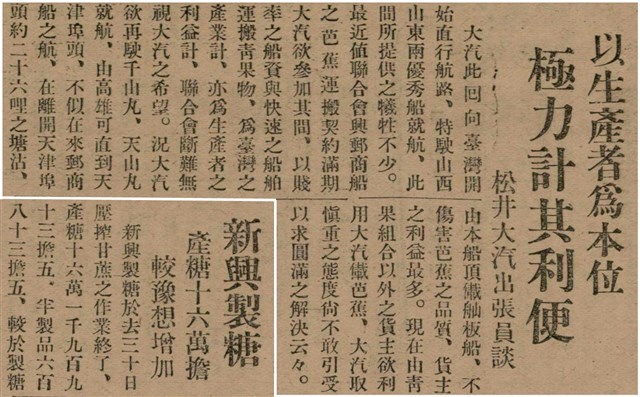 以生產者爲本位
極力計其利便
松井大汽出張員談
大汽此回向臺灣開
始直行航路、特駛山西
山東兩優秀船就航、此
間所提供之犧牲不少。
最近値聯合會與郵商船
之芭蕉運搬契約滿期
大汽欲參加其間、以賤
率之船賃與快速之船舶
運搬靑果物、爲臺灣之
產業計、亦爲生產者之
利益計、聯合會斷難無
視大汽之希望。況大汽
欲再駛千山丸、天山丸
就航、由高雄可直到天
津埠頭、不似在來郵商
船之航、在離開天津埠
頭約二十六哩之塘沽、
由本船頂儎舢板船、不
傷害芭蕉之品質、貨主
之利益最多。現在由靑
果組合以外之貨主欲利
用大汽儎芭蕉、大汽取
愼重之態度尙不敢引受
以求圓滿之解決云々。
新興製糖
產糖十六萬擔
較豫想增加
新興製糖於去三十日
壓搾甘蔗之作業終了、
產糖十六萬一千九百九
十三擔五。半製品六百
八十三擔五、較於製糖